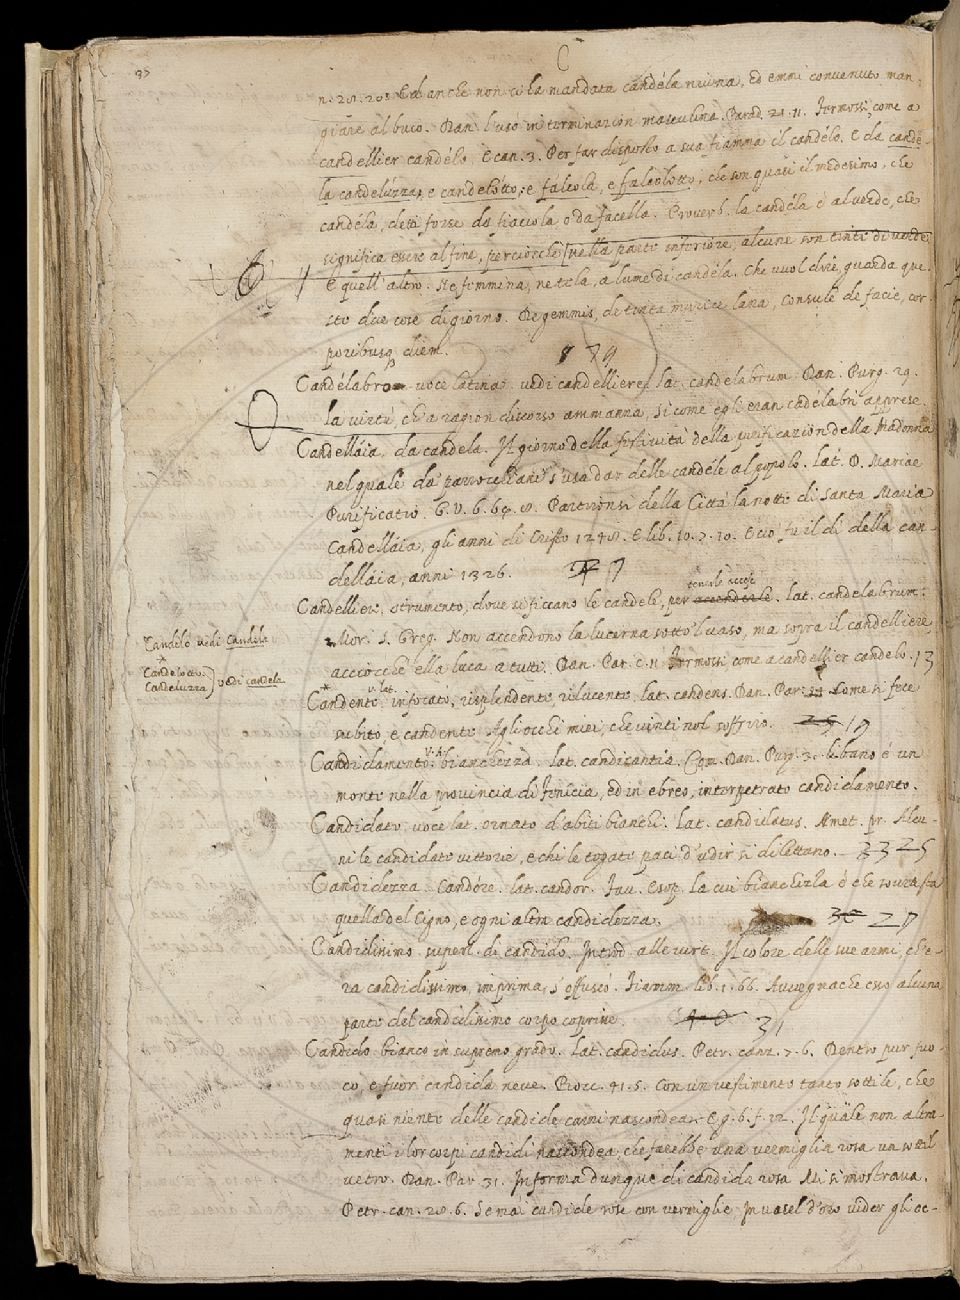 C
n. 20. 20. Ed anche non ci ha mandata candéla niuna, ed emmi convenuto man-
giare al buio. Dan. l'usò in terminazion masculina. Parad. 21. 11. Fermossi come a
candellier candélo. E can. 3. Per far disposto a sua fiamma il candélo. E da cande-
la candelúzza, e candelótto, e fálcola, e falcolótto, che son quasi il medesimo, che
candéla, detti forse da fiaccola o da facella. Proverb. la candéla è al verde, che
significa essere al fine, perciocchè nella parte inferiore, alcune son tinte di verde
E quell'altro. Ne femmina, ne tela, a lume di candéla. Che vuol dire, guarda que-
ste due cose di giorno. De gemmis, de tincta murice lana, consule de facie, cor-
poribusq; diem. 879
Candélabro voce latina. vedi candelliere. lat. candelabrum. Dan. Purg. 29.
la virtù, ch'a ragion discorso ammanna, Si come egli eran cadelabri apprese.
Candelláia, da candela. Il giorno della festività della purificazion della Madonna
nel quale da' parrocchiani s'usa dar delle candéle al popolo. Lat. D. Mariae
Purificatio. G. V. 6. Partironsi della Città la notte di Santa Maria
Candelláia, gli anni di Cristo 1248. E lib. 10. 7. 10. E ciò fu il dì della can-
delláia, anni 1326.
tenerle accese
Candelliere, strumento, dove si ficcano le candele, per accenderle. lat. candelabrum.
Mor. S. Greg. Non accendono la lucerna sotto 'l vaso, ma sopra il candelliere,
acciocchè ella luca a tutti. Dan. Par. c. 11. Fermossi come a candellier candelo. 13
Candelo vedi Candela
Candelotto.
Candeluzza } vedi candela
v. lat.
Candente. infocato, risplendente, rilucente. lat. candens. Dan. Par. 14. Come si fece
subito, e candente Agli occhi miei, che vinti nol soffriro. 19
Candidamento. v. A. bianchezza. lat. candicantia. Com. Dan. Purg. 3. libano è un
monte nella provincia di Fenicia, ed in ebreo, interpetrato candidamento.
Candidato. voce lat. ornato d'abiti bianchi. Lat. candidatus. Amet. pr. Alcu-
ni le candidate vittorie, e chi le togate paci d'udir si dilettano. 25
Candidezza. Candóre. lat. candor. Fav. Esop. La cui bianchezza è che sovrasta
quella del Cigno, e ogni altra candidezza.
Candidissimo. superl. di candido. Introd. alle virt. Il colore delle sue armi, ch'e-
ra candidissimo, imprima, s'offuscò. Fiamm. lib. 1. 66. Avvegnachè esso alcuna
parte del candidissimo corpo coprisse. 31
Candido bianco in supremo grado. Lat. candidus. Petr. canz. 7. 6. Dentro pur fuo-
co, e fuor candida neve. Bocc. 41. 5. Con un vestimento tanto sottile, che
quasi niente delle candide carni nascondea. E g. 6. f. 12. Il quale non altra-
menti i lor corpi candidi nascondea, che farebbe una vermiglia rosa un sottil
vetro. Dan. Par. 31. In forma dunque di candida rosa Mi si mostrava.
Petr. can. 20. 6. Se mai candide rose con vermiglie, In vasel d'oro vider gli oc-